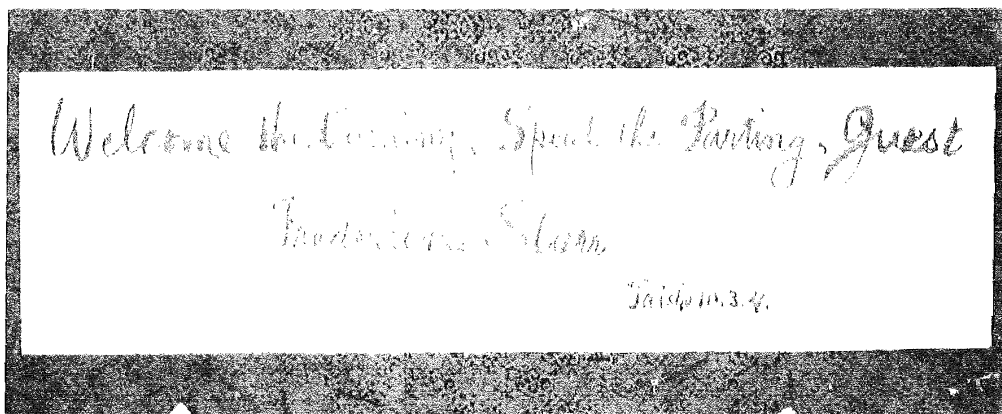 Welcome the Coming, Speed the Parting, Guest
Frederick Starr
Taisho 10.3.4.